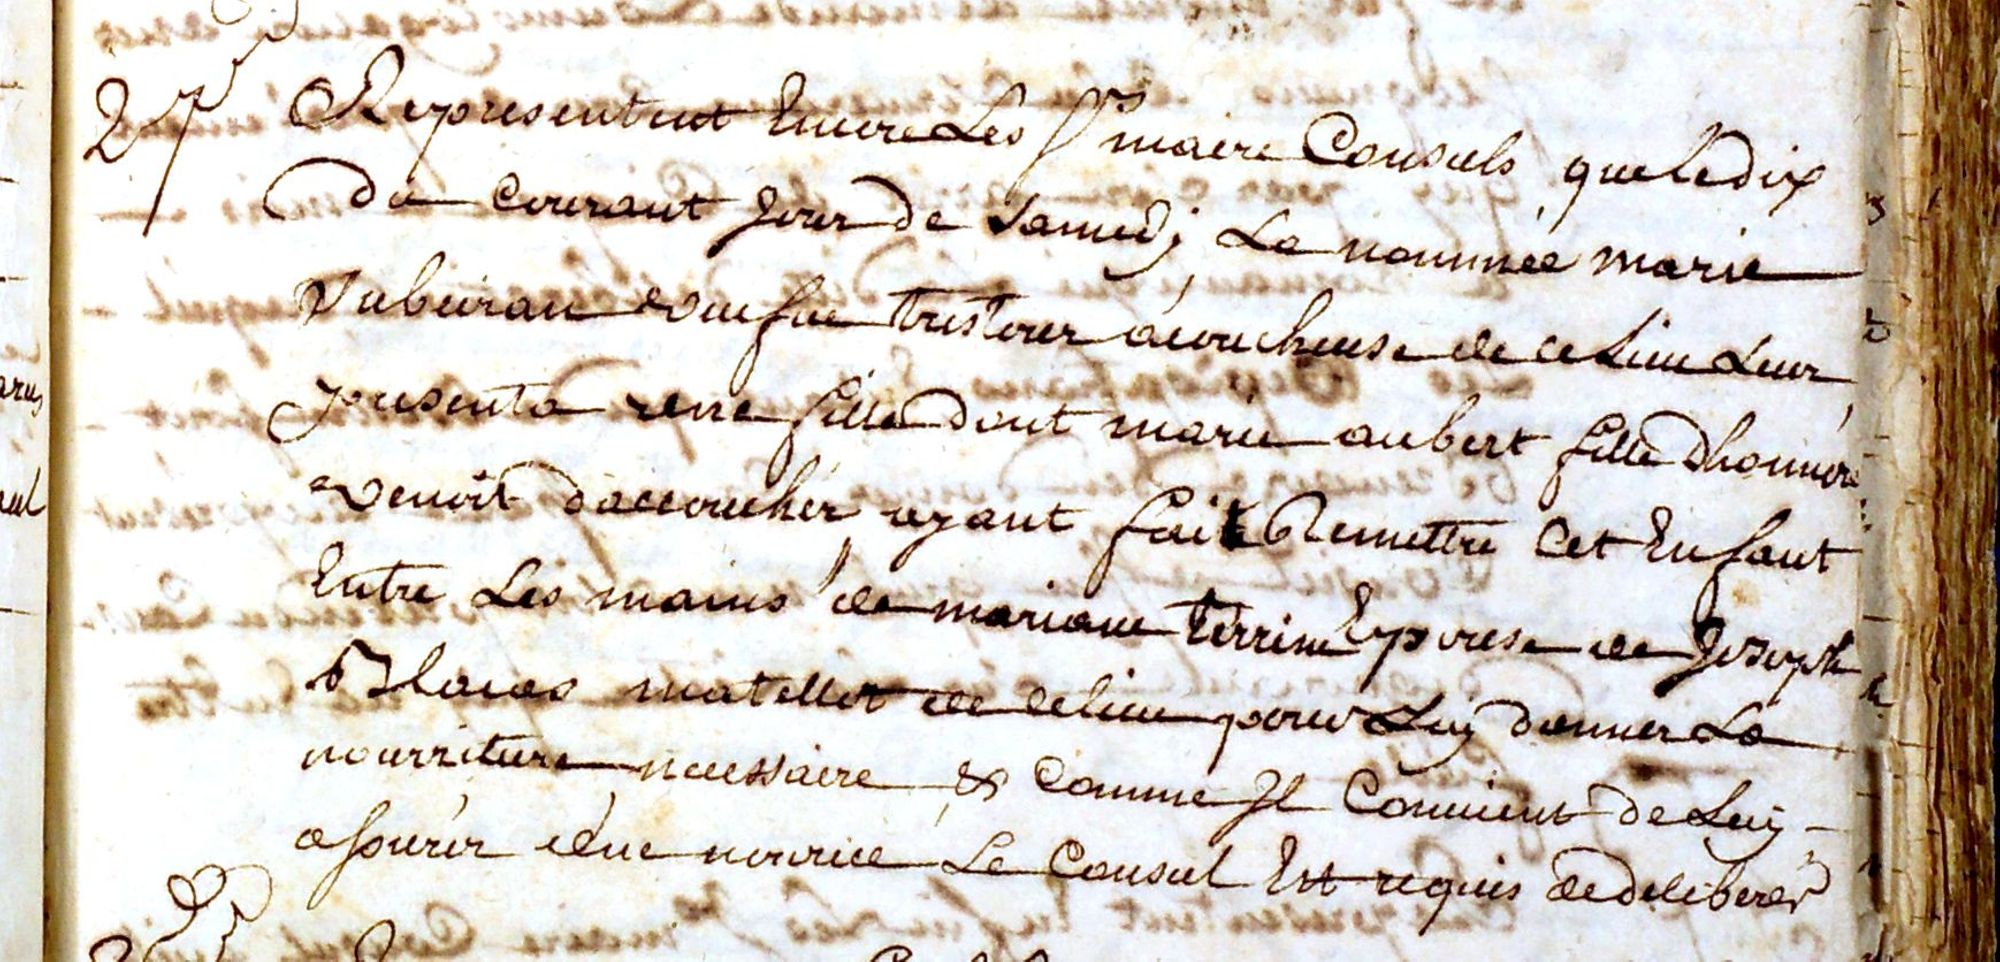 Representent Encore Les Srs maire Consuls que le dix
du courant Jour de Samedj La nommée marie
veufue acoucheuse de ce Lieu Leur
presenta une fille dont marie aubert fille dhonneur
venoit daccoucher, ayant fait Remettre Cet Enfant
Entre Les mains de mariane Terrin Epouse de Joseph
Blacas matellot de ce lieu pour Luy donner La
nourriture necessaire & Comme Jl Conuient de Luy
assurer une nourrice Le Conseil Est requis de deliberer